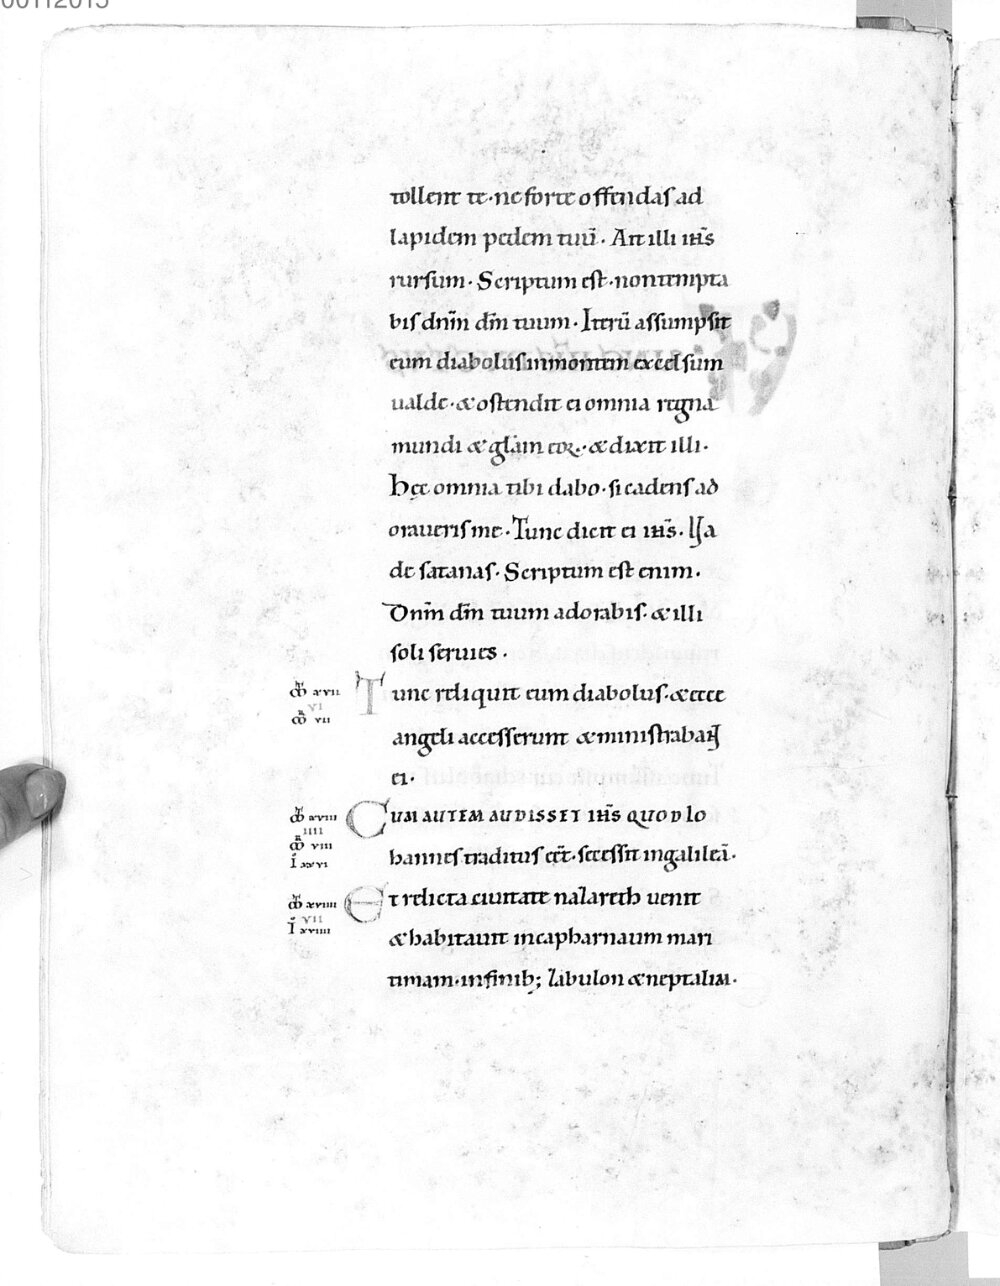 00112015
tollent te · ne forte offendas ad
lapidem pedem tuū . Ait illi ih̄s
rursum · Scriptum est · non tempta
bis dn̄m dm̄ tuum · Iterū assumpsit
eum diabolus inmontem excelsum
ualde · & ostendit ei omnia regna
mundi & gl̄am eoꝝ · & dixit illi ·
hęc omnia tibi dabo · si cadens ad
oraueris me · Tunc dicit ei ih̄s · Ua
de satanas · Scriptum est enim ·
Dn̄m dm̄ tuum adorabis · & illi
soli seruies ·
Tunc reliquit eum diabolus · & ecce
angeli accesserunt & ministrabant
ei ·
CUM AUTEM AUDISSET IH̄S QUOD IO
hannes traditus eēt · secessit ingalileā ·
Et relicta ciuitate nazareth uenit
& habitauit incapharnaum mari
timam · infinib; zabulon & neptalim ·
xvii
vi
vii
xviii
iiii
viii
I xxvi
xviiii
vii
I xviiii